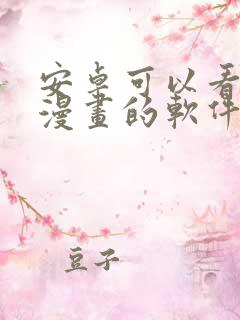 安卓可以看
漫畫的軟件
豆子